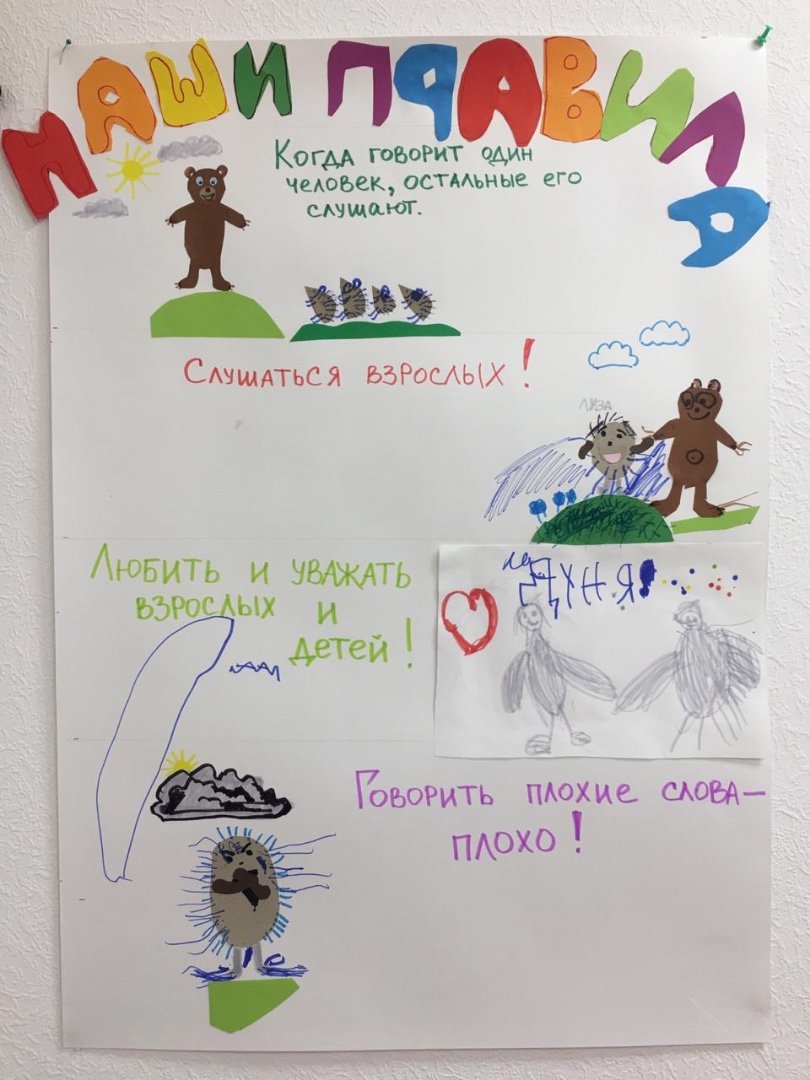 НАШИ ПРАВИЛА
Когда говорит один
человек, остальные его
слушают.
Слушаться взрослых!
ЛИЗА
Любить и уважать
взрослых и
детей!
Говорить плохие слова —
плохо!